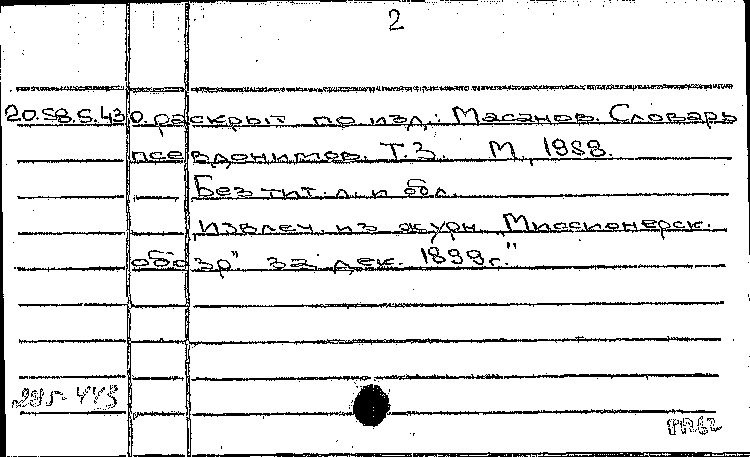 2
20.58.5.43 О. раскрыт по изд.: Масанов. Словарь
псевдонимов. Т.3. М., 1958.
Без тит. л. и обл.
Извлеч. из журн. "Миссионерск.
обозр" за дек. 1899г."
285-443